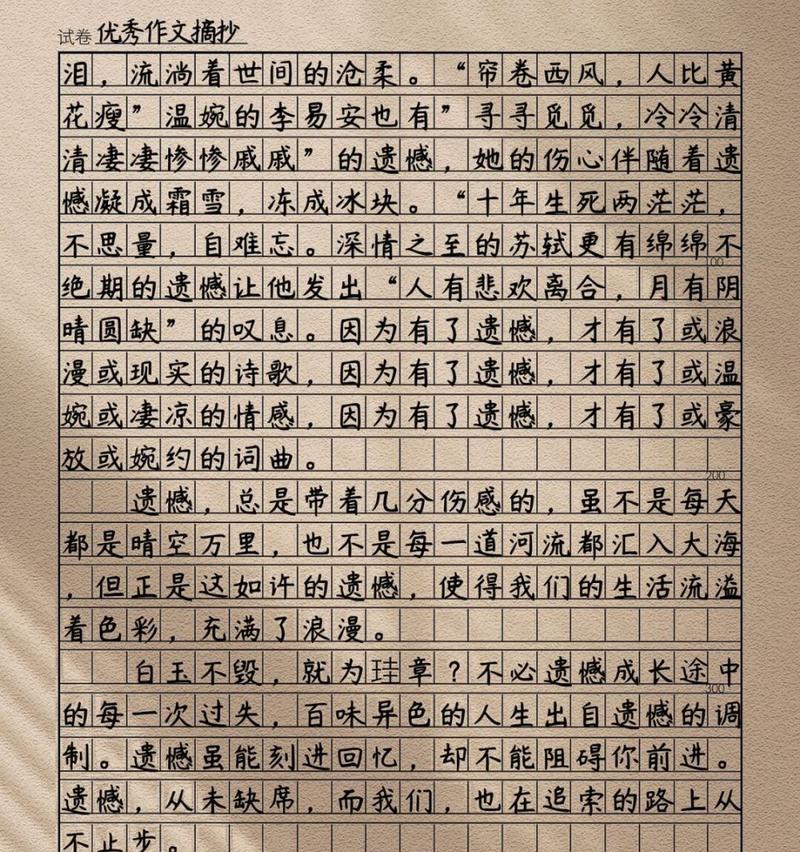 试卷 优秀作文摘抄
泪，流淌着世间的沧柔。“帘卷西风，人比黄
花瘦”温婉的李易安也有”寻寻觅觅，冷冷清
清凄凄惨惨戚戚”的遗憾，她的伤心伴随着遗
憾凝成霜雪，冻成冰块。“十年生死两茫茫，
不思量，自难忘。深情之至的苏轼更有绵绵不
100
绝期的遗憾让他发出“人有悲欢离合，月有阴
晴圆缺”的叹息。因为有了遗憾，才有了或浪
漫或现实的诗歌，因为有了遗憾，才有了或温
婉或凄凉的情感，因为有了遗憾，才有了或豪
放或婉约的词曲。
200
遗憾，总是带着几分伤感的，虽不是每天
都是晴空万里，也不是每一道河流都汇入大海
，但正是这如许的遗憾，使得我们的生活流溢
着色彩，充满了浪漫。
白玉不毁，就为珪章？不必遗憾成长途中
300
的每一次过失，百味异色的人生出自遗憾的调
制。遗憾虽能刻进回忆，却不能阻碍你前进。
遗憾，从未缺席，而我们，也在追索的路上从
不止步。